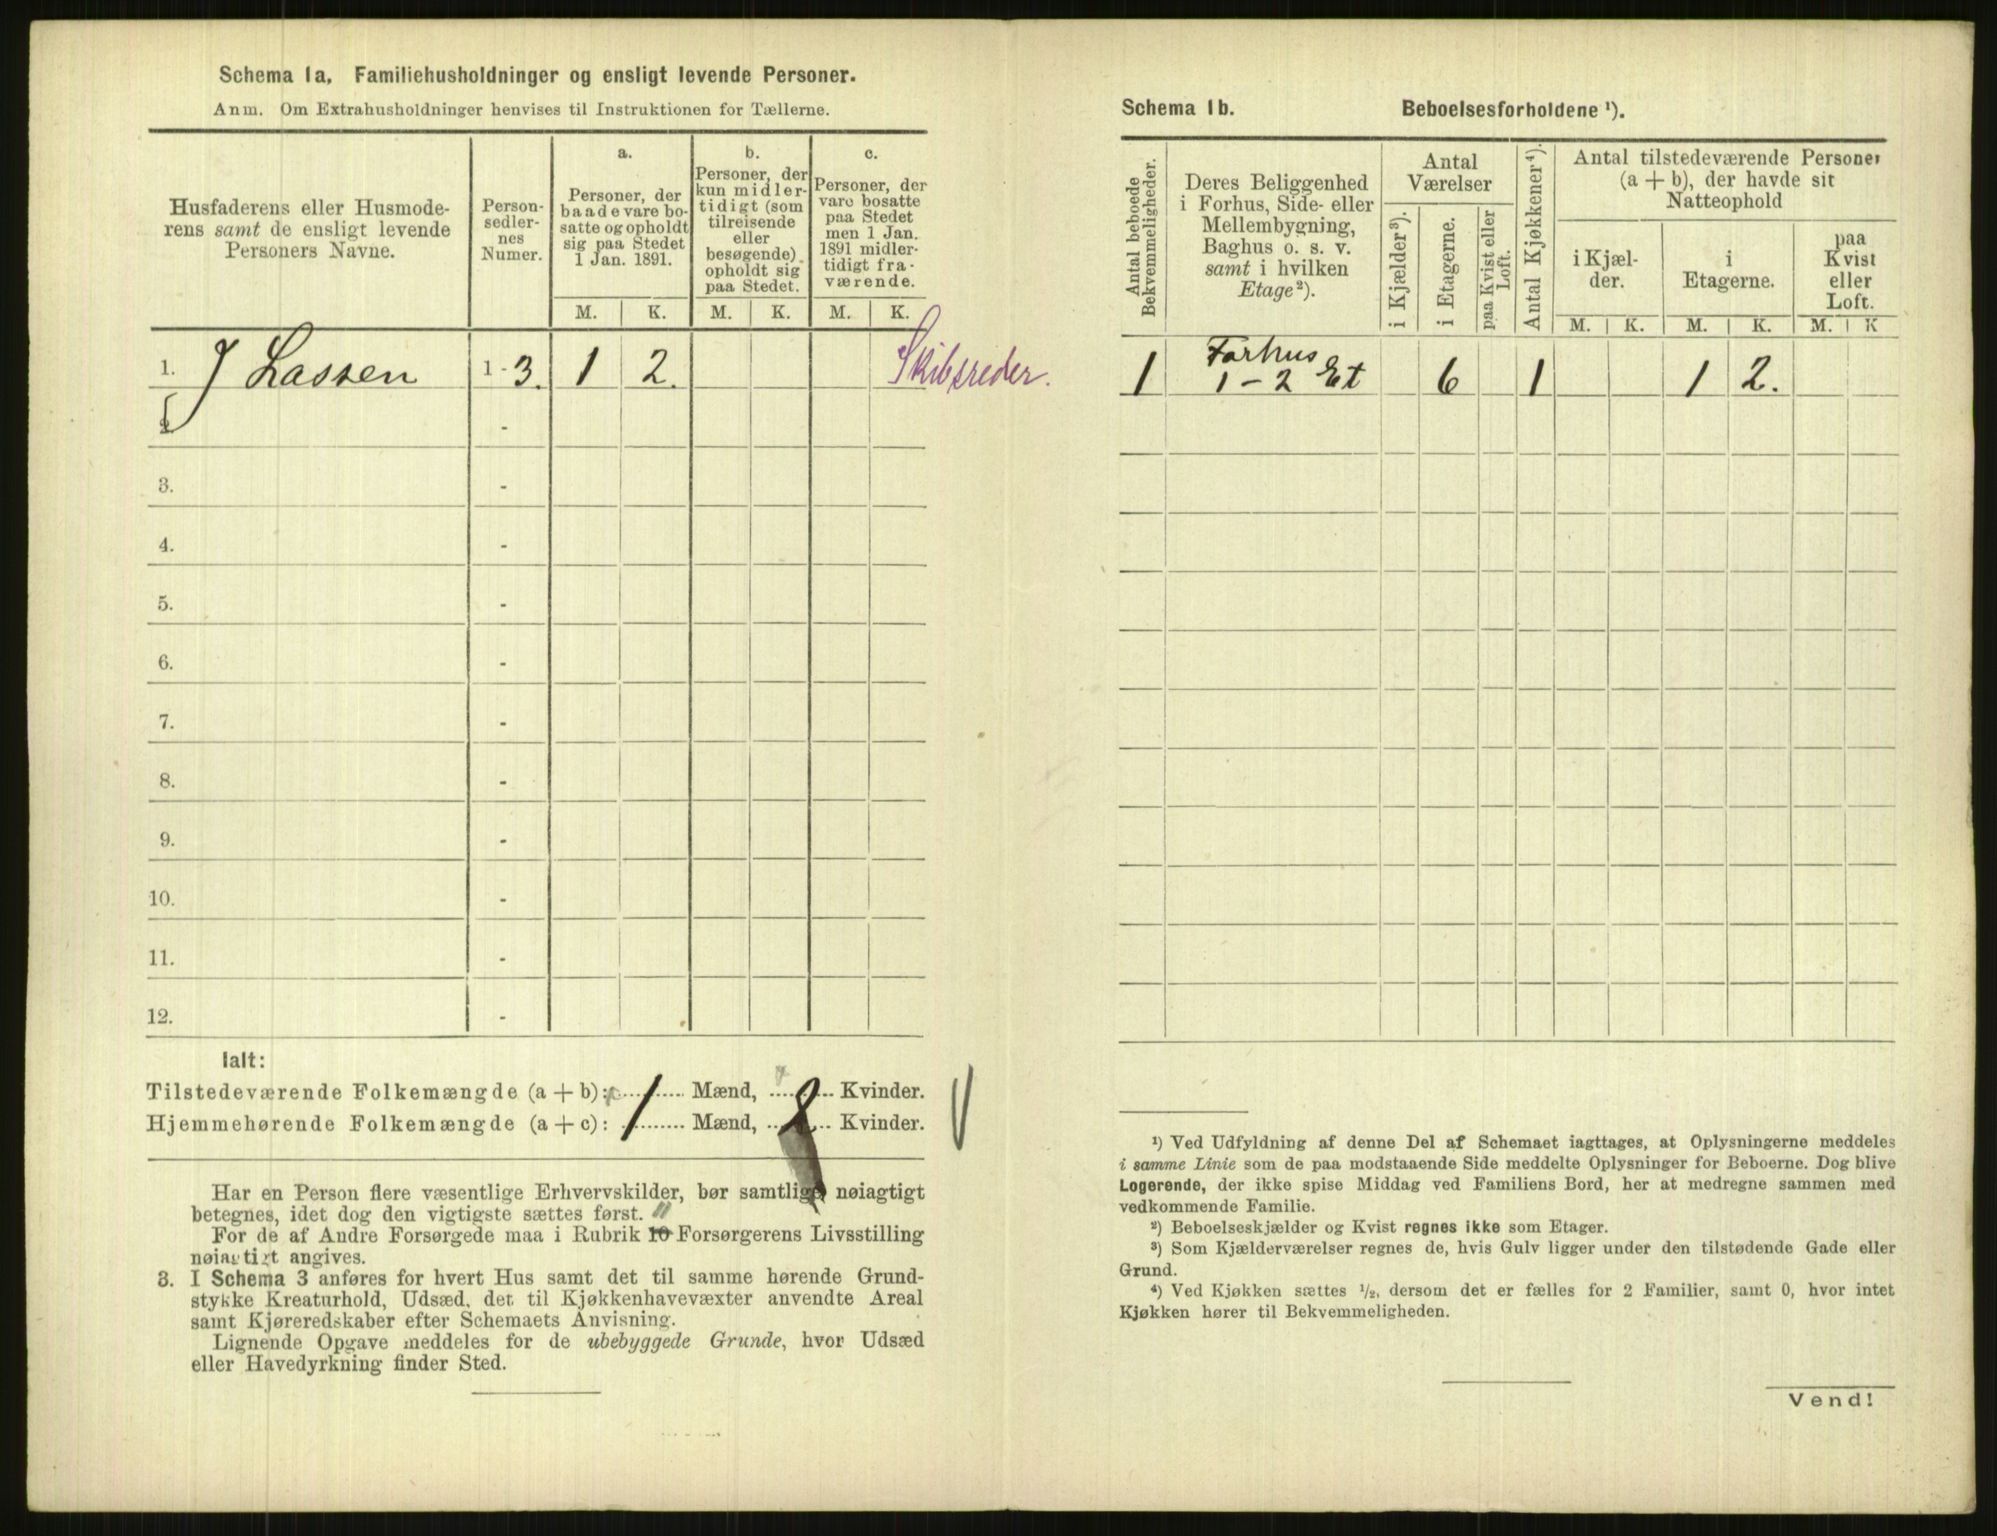 Schema 1a. Familiehusholdninger og ensligt levende Personer.
Anm. Om Extrahusholdninger henvises til Instruktionen for Tællerne.
Husfaderens eller Husmode-
rens samt de ensligt levende
Personers Navne.
Person-
sedler-
nes
Numer.
a.
Personer, der
baade vare bo-
satte og opholdt
sig paa Stedet
1 Jan. 1891.
b.
Personer, der
kun midler-
tidigt (som
tilreisende
eller
besøgende)
opholdt sig
paa Stedet.
c.
Personer, der
vare bosatte
paa Stedet
men 1 Jan.
1891 midler-
tidigt fra-
værende.
M. K. M. K. M. K.
1. J Lassen 1 - 3. 1 2. Skibsreder.
2. -
3. -
4. -
5. -
6. -
7. -
8. -
9. -
10. -
11. -
12. -
Ialt:
Tilstedeværende Folkemængde (a + b): 1 Mænd, 2 Kvinder.
Hjemmehørende Folkemængde (a + c): 1 Mænd, 2 Kvinder.
Har en Person flere væsentlige Erhvervskilder, bør samtlige nøiagtigt
betegnes, idet dog den vigtigste sættes først.
For de af Andre Forsørgede maa i Rubrik 10 11 Forsørgerens Livsstilling
nøiagtigt angives.
3. I Schema 3 anføres for hvert Hus samt det til samme hørende Grund-
stykke Kreaturhold, Udsæd, det til Kjøkkenhavevæxter anvendte Areal
samt Kjøreredskaber efter Schemaets Anvisning.
Lignende Opgave meddeles for de ubebyggede Grunde, hvor Udsæd
eller Havedyrkning finder Sted.
Schema 1b. Beboelsesforholdene ¹).
Antal beboede
Bekvemmeligheder.
Deres Beliggenhed
i Forhus, Side- eller
Mellembygning,
Baghus o. s. v.
samt i hvilken
Etage²).
Antal
Værelser
i Kjælder³).
i Etagerne.
paa Kvist eller
Loft.
Antal Kjøkkener⁴).
Antal tilstedeværende Personer
(a + b), der havde sit
Natteophold
i Kjæl-
der.
i
Etagerne.
paa
Kvist
eller
Loft.
M. K. M. K. M. K
Forhus
1 1 - 2 Et 6 1 1 2.
¹) Ved Udfyldning af denne Del af Schemaet iagttages, at Oplysningerne meddeles
i samme Linie som de paa modstaaende Side meddelte Oplysninger for Beboerne. Dog blive
Logerende, der ikke spise Middag ved Familiens Bord, her at medregne sammen med
vedkommende Familie.
²) Beboelseskjælder og Kvist regnes ikke som Etager.
³) Som Kjælderværelser regnes de, hvis Gulv ligger under den tilstødende Gade eller
Grund.
⁴) Ved Kjøkken sættes ½, dersom det er fælles for 2 Familier, samt 0, hvor intet
Kjøkken hører til Bekvemmeligheden.
Vend!